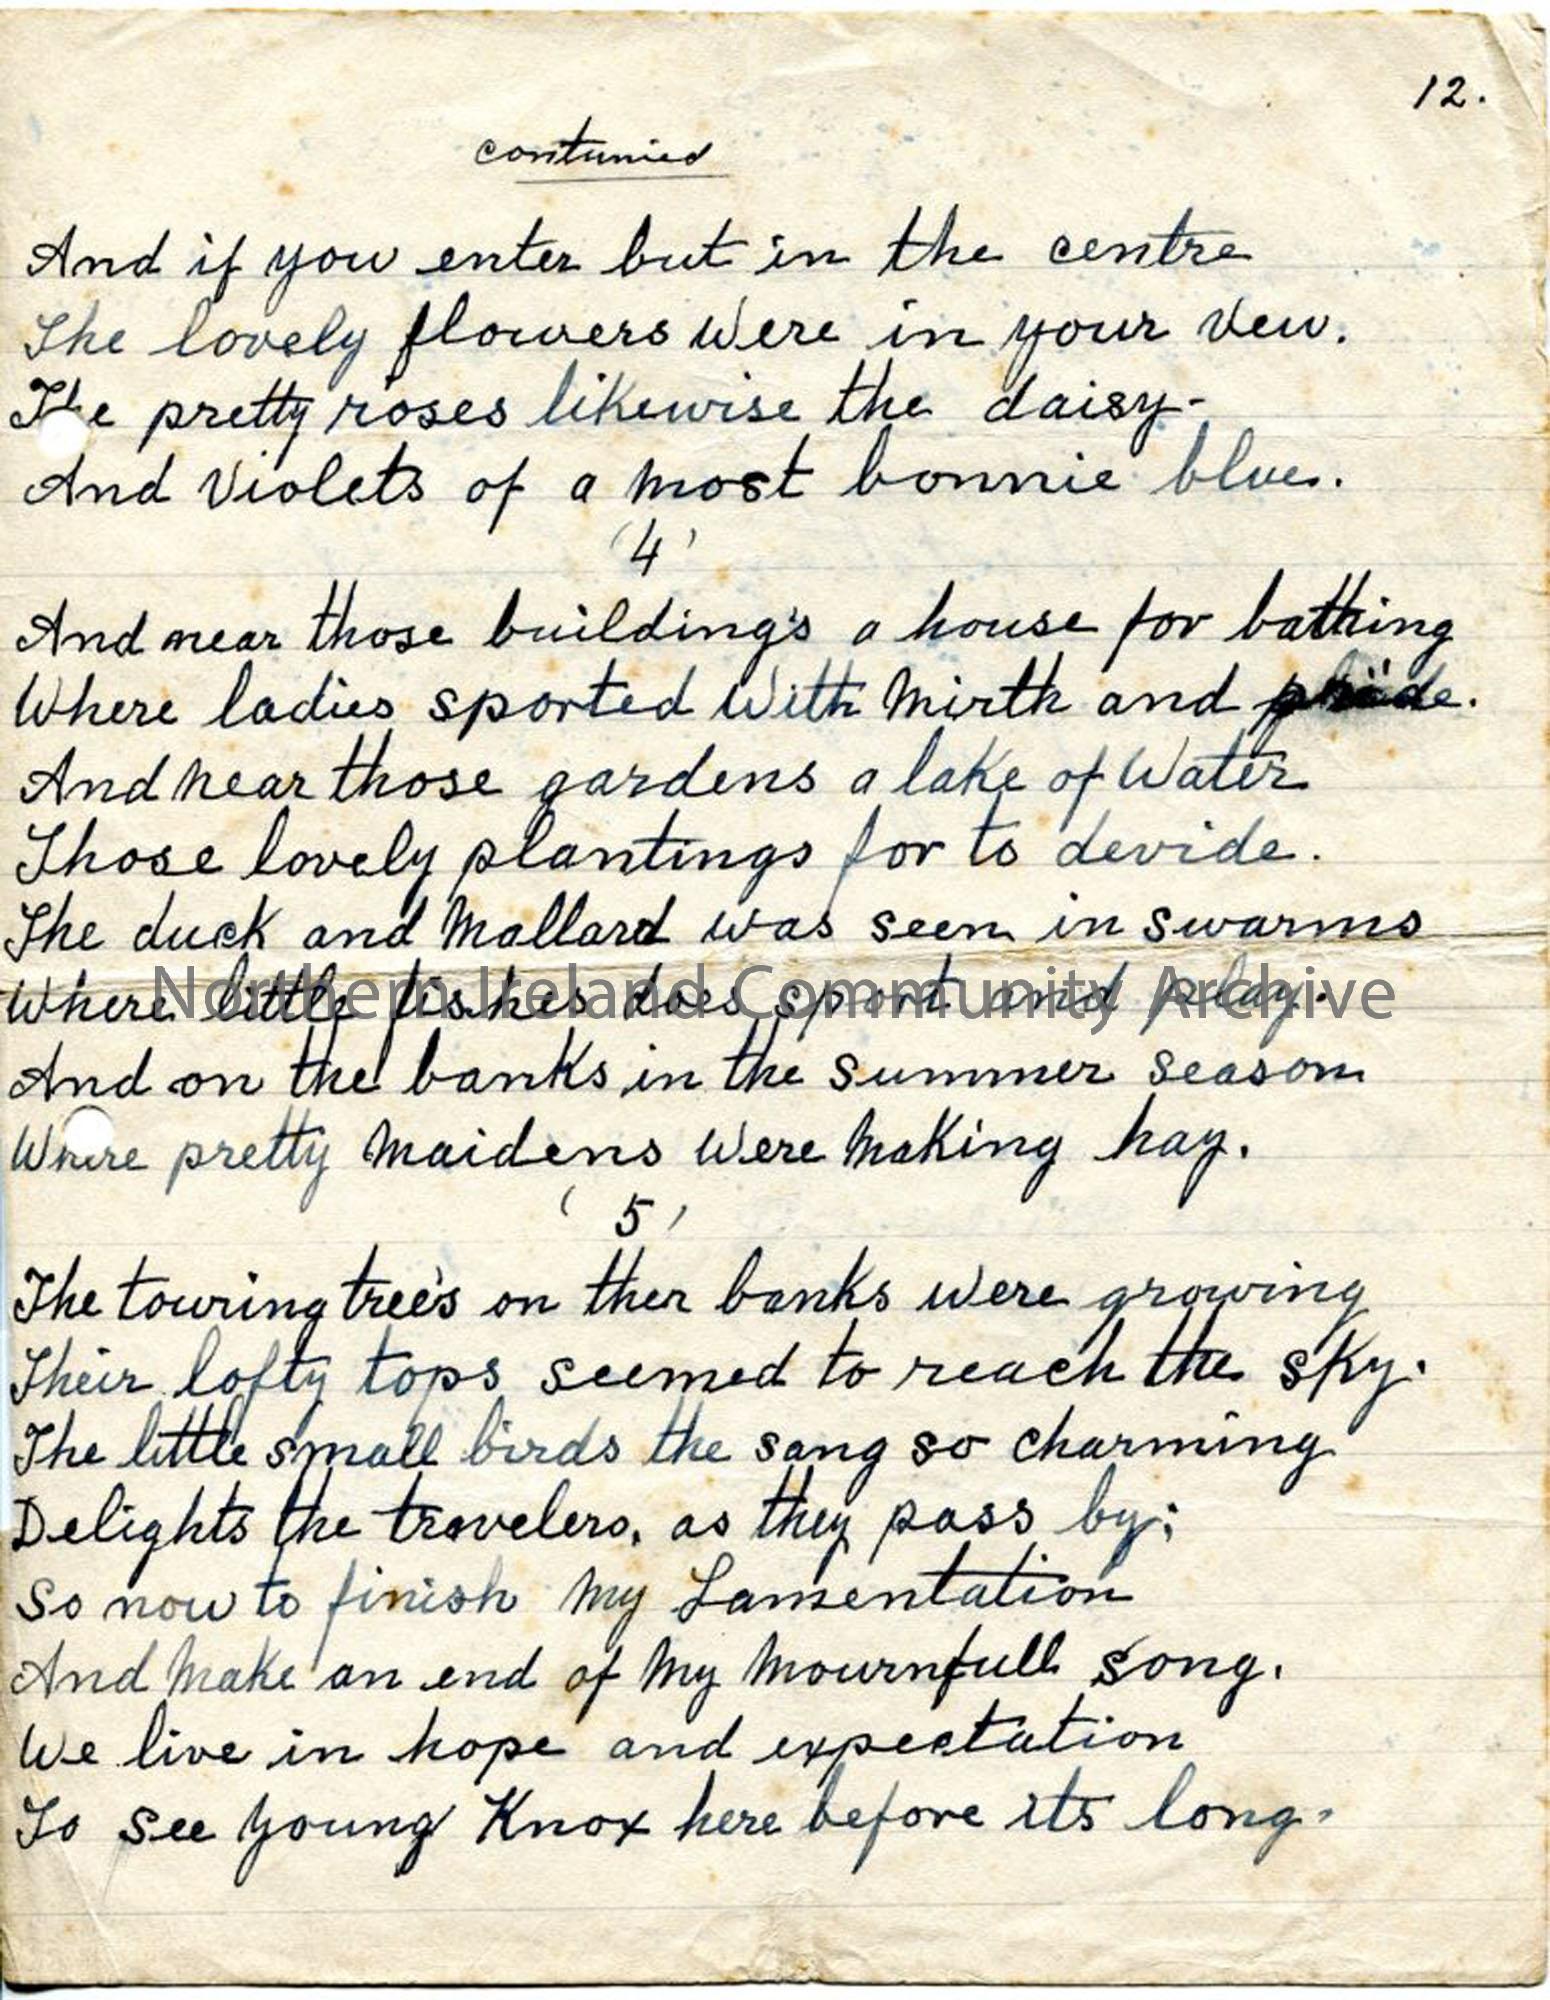 12.
contunied
And if you enter but in the centre
The lovely flowers were in your vew.
The pretty roses likewise the daisy-
And Violets of a most bonnie blue.
(4)
And near those building's a house for bathing
Where ladies sported with mirth and pride.
And near those gardens a lake of Water
Those lovely plantings for to devide.
The duck and Mallard was seen in swarms
Where little fishes does sport and play.
Northern Ireland Community Archive
And on the banks in the summer season
Where pretty maidens were making hay.
(5)
The touring tree's on ther banks were growing
Their lofty tops seemed to reach the sky.
The little small birds the sang so charming
Delights the travelers, as they pass by;
So now to finish my Lamentation
And make an end of my mournfull song.
We live in hope and expectation
To see young Knox here before its long.